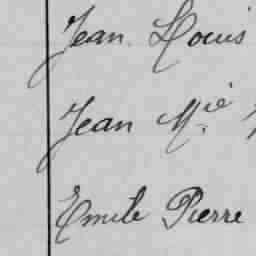 Jean Louis
Jean M.ie
Emile Pierre